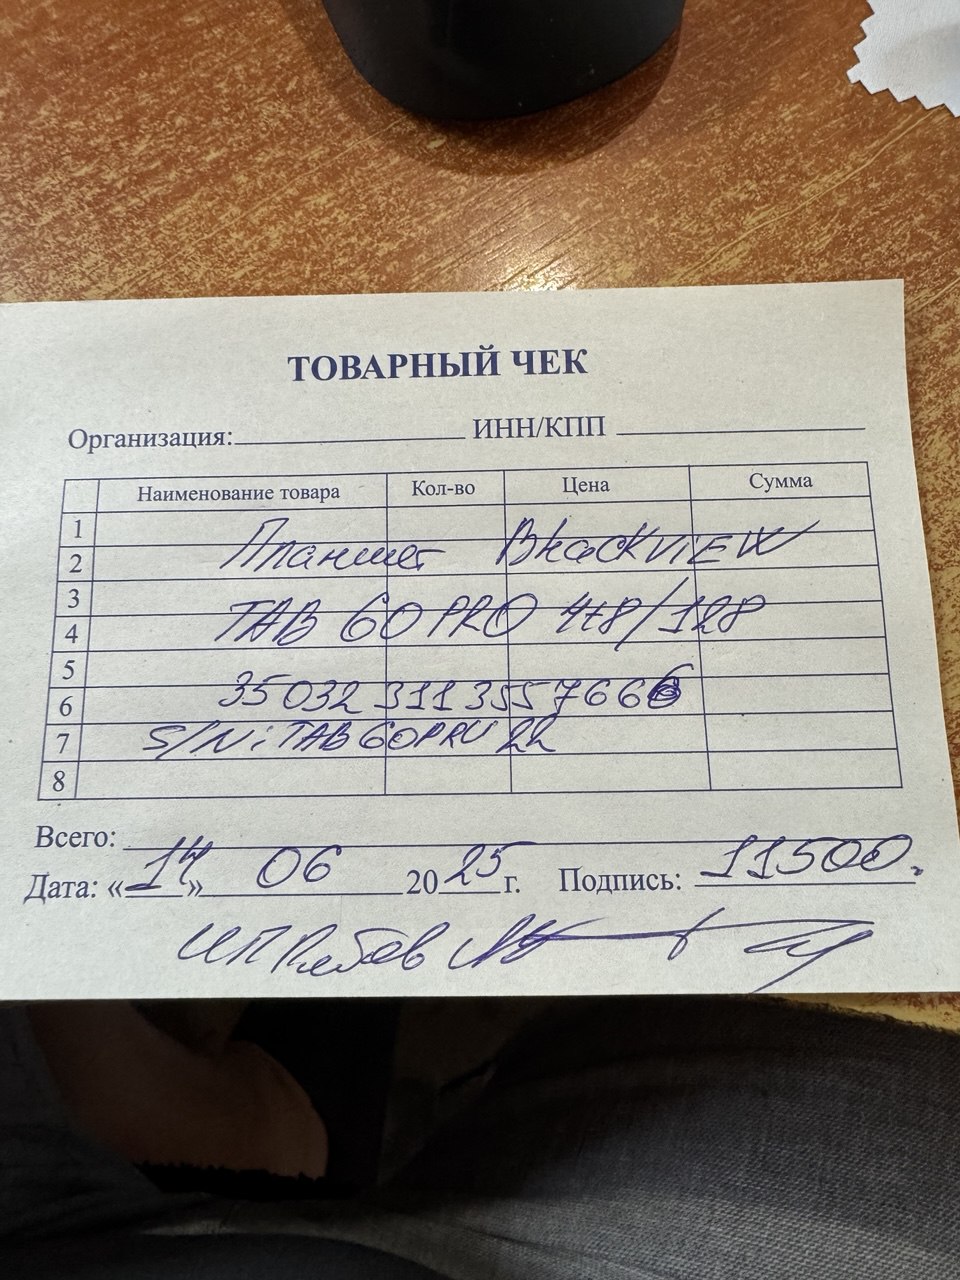 ТОВАРНЫЙ ЧЕК
Организация: ИНН/КПП
Наименование товара Кол-во Цена Сумма
1
2 Планшет BlackVIEW
3
4 TAB 60 PRO 4+8/128
5
6 350323113557666
7 S/N: TAB60PRO22
8
Всего:
Дата: «14» 06 2025 г. Подпись: 11500.
ИП